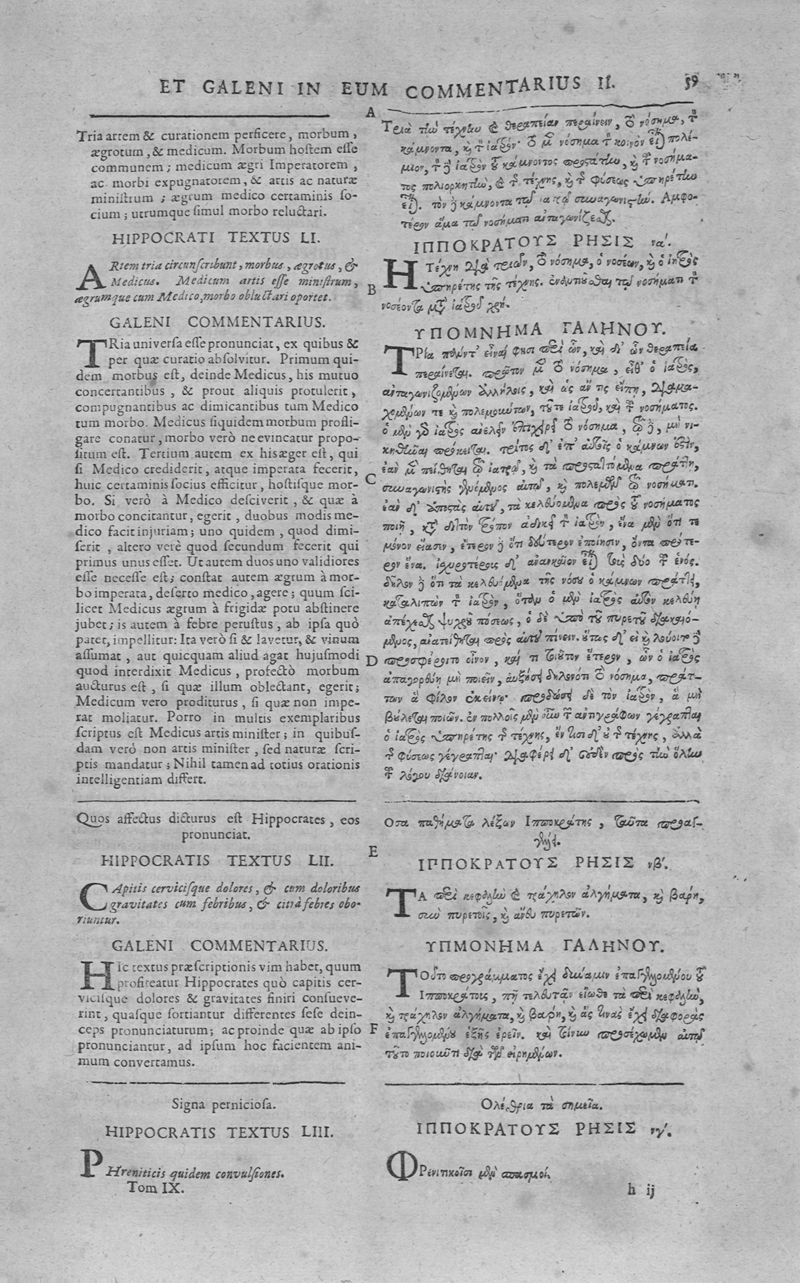 ET GALENI IN EUM COMMENTARIUS II. 59
Tria artem & curationem perficere, morbum,
ægrotum, & medicum. Morbum hostem esse
communem; medicum ægri Imperatorem,
ac morbi expugnatorem, & artis ac naturæ
ministrum; ægrum medico certaminis so-
cium; utrumque simul morbo reluctari.
HIPPOCRATI TEXTUS LI.
ARtem tria circunscribunt, morbus, ægrotus, &
Medicus. Medicum artis esse ministrum,
ægrumque cum Medico, morbo obluctari oportet.
GALENI COMMENTARIUS.
TRia universa esse pronunciat, ex quibus &
per quæ curatio absolvitur. Primum qui-
dem morbus est, deinde Medicus, his mutuo
concertantibus, & prout aliquis protulerit,
compugnantibus ac dimicantibus tum Medico
tum morbo. Medicus siquidem morbum profli-
gare conatur, morbo verò ne evincatur propo-
situm est. Tertium autem ex his æger est, qui
si Medico crediderit, atque imperata fecerit,
huic certaminis socius efficitur, hostisque mor-
bo. Si verò à Medico desciverit, & quæ à
morbo concitantur, egerit, duobus modis me-
dico facit injuriam; uno quidem, quod dimi-
serit, altero verè quod secundum fecerit qui
primus unus esset. Ut autem duos uno validiores
esse necesse est; constat autem ægrum à mor-
bo imperata, deserto medico, agere; quum sci-
licet Medicus ægrum à frigidæ potu abstinere
jubet; is autem à febre perustus, ab ipsa quò
potet, impellitur: Ita verò si & lavetur, & vinum
assumat, aut quicquam aliud agat hujusmodi
quod interdixit Medicus, profectò morbum
aucturus est, si quæ illum oblectant, egerit;
Medicum vero proditurus, si quæ non impe-
rat moliatur. Porro in multis exemplaribus
scriptus est Medicus artis minister; in quibus-
dam verò non artis minister, sed naturæ scri-
ptis mandatur; Nihil tamen ad totius orationis
intelligentiam differt.
Quos affectus dicturus est Hippocrates, eos
pronunciat.
HIPPOCRATIS TEXTUS LII.
CApitis cervicisque dolores, & cum doloribus
gravitates cum febribus, & citrà febres obo-
riuntur.
GALENI COMMENTARIUS.
HIc textus præscriptionis vim habet, quum
profiteatur Hippocrates quò capitis cer-
vicisque dolores & gravitates finiri consueve-
rint, quasque sortiantur differentes sese dein-
ceps pronunciaturum; ac proinde quæ ab ipso
pronunciantur, ad ipsum hoc facientem ani-
mum convertamus.
Signa perniciosa.
HIPPOCRATIS TEXTUS LIII.
PHreniticis quidem convulsiones.
Tom IX.
A
Τρία τὴν τέχνην καὶ θεραπείαν περαίνειν, τὸ νόσημα, τὸν
κάμνοντα, καὶ τὸν ἰατρόν· τὸ μὲν νόσημα τὸν κοινὸν εἶναι πολέ-
μιον, τὸν δὲ ἰατρὸν τοῦ κάμνοντος προστάτην, καὶ τοῦ νοσήμα-
τος πολιορκητὴν, καὶ τῆς τέχνης, καὶ τῆς φύσεως ὑπηρέτην
εἶναι. τὸν δὲ κάμνοντα τῷ ἰατρῷ συναγωνιστήν. Ἀμφο-
τέρον ἅμα τῷ νοσήματι ἀνταγωνίζεσθαι.
ΙΠΠΟΚΡΑΤΟΥΣ ΡΗΣΙΣ να΄.
B
Ἡ Τέχνη διὰ τριῶν, τὸ νόσημα, ὁ νοσέων, καὶ ὁ ἰητρὸς
ὑπηρέτης τῆς τέχνης. ἐναντιοῦσθαι τῷ νοσήματι τὸν
νοσέοντα μετὰ ἰατροῦ χρή.
ΥΠΟΜΝΗΜΑ ΓΑΛΗΝΟΥ.
ΤΡία πάντ' εἶναί φησι περὶ ὧν, καὶ δι' ὧν θεραπεία
περαίνεται. πρῶτον μὲν τὸ νόσημα, εἶθ' ὁ ἰατρὸς,
ἀνταγωνιζομένων ἀλλήλοις, καὶ ὡς ἄν τις εἴπῃ, διαμα-
χομένων τε καὶ πολεμούντων, τοῦτε ἰατροῦ, καὶ τοῦ νοσήματος.
ὁ μὲν γὰρ ἰατρὸς ἀνελεῖν ἐπιχειρεῖ τὸ νόσημα, τῷ δὲ, μὴ νι-
κηθῆναι πρόκειται. τρίτος δ' ἐπ' αὐτοῖς ὁ κάμνων ἐστὶν,
C
ἐὰν μὲν πείθηται τῷ ἰατρῷ, καὶ τὰ προσταττόμενα πράττῃ,
συναγωνιστὴς γενόμενος αὐτῷ, καὶ πολεμῶν τῷ νοσήματι.
ἐὰν δ' ἀποστὰς αὐτοῦ, τὰ κελευόμενα πρὸς τοῦ νοσήματος
ποιῇ, κατὰ διττὸν τρόπον ἀδικεῖ τὸν ἰατρὸν, ἕνα μὲν ὅτι τε
μόνον εἴασεν, ἕτερον δὲ ὅτι δεύτερον ἐποίησεν, ὄντα πρότε-
ρον ἕνα. ἰσχυροτέροις δ' ἀναγκαῖον εἶναι τοὺς δύο τοῦ ἑνός.
δῆλον δὲ ὅτι τὰ κελευόμενα τῆς νόσου ὁ κάμνων πράττει,
καταλιπὼν τὸν ἰατρὸν, ὅταν ὁ μὲν ἰατρὸς αὐτὸν κελεύῃ
ἀπέχεσθαι ψυχροῦ πόσεως, ὁ δὲ ὑπὸ τοῦ πυρετοῦ διακαιό-
μενος, ἀναπείθηται πρὸς αὐτοῦ πίνειν. οὕτως δ' εἰ καὶ λούοιτο δὲ
D
προσφέροιτο οἶνον, καί τι τοιοῦτον ἕτερον, ὧν ὁ ἰατρὸς
ἀπαγορεύῃ μὴ ποιεῖν, αὐξήσει δηλονότι τὸ νόσημα, πράτ-
των ἃ φίλον ἐκείνῳ· προδώσει δὲ τὸν ἰατρὸν, ἃ μὴ
βούλεται ποιῶν. ἐν πολλοῖς μὲν οὖν τῶν ἀντιγράφων γέγραπται
ὁ ἰατρὸς ὑπηρέτης τῆς τέχνης, ἔν τισι δ' οὐ τῆς τέχνης, ἀλλὰ
τῆς φύσεως γέγραπται· διαφέρει δ' οὐδὲν πρὸς τὴν ὅλην
τοῦ λόγου διάνοιαν.
Οσα παθήματα λέξων Ἱπποκράτης, ταῦτα προαγ-
γέλλει.
E
ΙΠΠΟΚΡΑΤΟΥΣ ΡΗΣΙΣ νβ΄.
ΤΑ περὶ κεφαλὴν καὶ τράχηλον ἀλγήματα, καὶ βάρη,
σὺν πυρετοῖς, καὶ ἄνευ πυρετῶν.
ΥΠΜΟΝΗΜΑ ΓΑΛΗΝΟΥ.
ΤΟῦτο προγράμματος ἔχει δύναμιν ἐπαγγελλομένου τοῦ
Ἱπποκράτους, πῆ τελευτᾶν εἴωθε τὰ περὶ κεφαλὴν,
καὶ τράχηλον ἀλγήματα, καὶ βάρη, καὶ ἅς τινας ἔχει διαφορὰς
F
ἐπαγγελλομένου ἑξῆς ἐρεῖν. καὶ τοίνυν προσέχωμεν αὐτῷ
τοῦτο ποιοῦντι διὰ τῶν εἰρημένων.
Ολέθρια τὰ σημεῖα.
ΙΠΠΟΚΡΑΤΟΥΣ ΡΗΣΙΣ νγ΄.
ΦΡενιτικοῖσι μὲν σπασμοί.
h ij